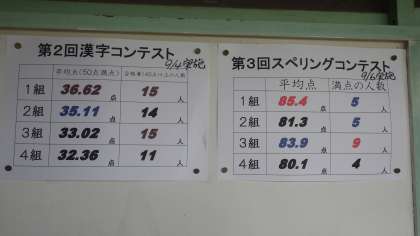 第2回漢字コンテスト
9/4実施
平均点(50点満点) 合格者(40点以上)の人数
1組 36.62点 15人
2組 35.11点 14人
3組 33.02点 15人
4組 32.36点 11人
第3回スペリングコンテスト
9/6実施
平均点 満点の人数
1組 85.4点 5人
2組 81.3点 5人
3組 83.9点 9人
4組 80.1点 4人